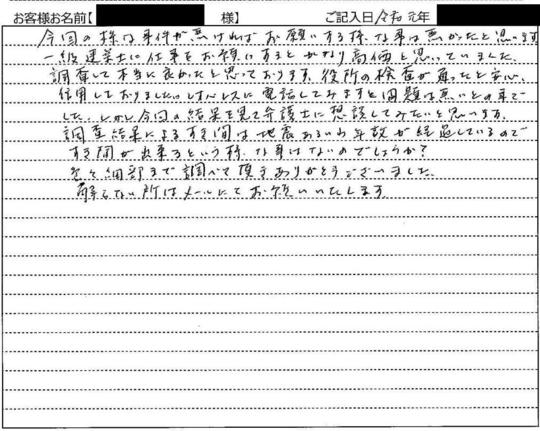 お客様お名前【 様】 ご記入日 令和 元年
今回の様な事件が無ければお願いする様な事は無かったと思います
一級建築士に仕事をお願いするとかなり高価と思っていました。
調査して本当に良かったと思っております。役所の検査が通ったと安心、
信用しておりました。レオパレスに電話してみますと問題は無いとの事で
した。しかし今回の結果を見て弁護士に相談してみたいと思います。
調査結果によるすき間は地震あるいは年数が経過しているので
すき間が出来るという様な事はないのでしょうか?
色々細部まで調べて頂きありがとうございました。
解らない所はメールにてお願いいたします